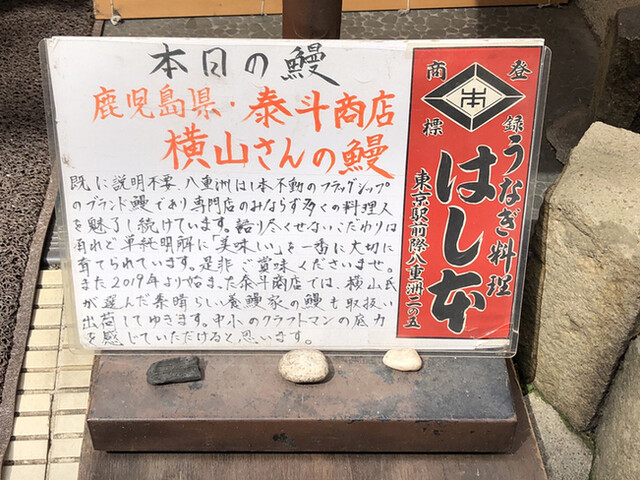 本日の鰻
鹿児島県・泰斗商店
横山さんの鰻
既に説明不要、八重洲は1本不動のフラッグシップ
のブランド鰻であり専門店のみならず多くの料理人
を魅了し続けています。語り尽くせないこだわりは
有れど単純明解に「美味しい」を一番に大切に
育てられています。是非ご賞味くださいませ。
また2019年より始まった泰斗商店では、横山氏
が選んだ素晴らしい養鰻家の鰻も取扱い
出荷してゆきます。中小のクラフトマンの底力
を感じていただけると思います。
登録
商標
うなぎ料理
はし本
東京駅前際八重洲二の五